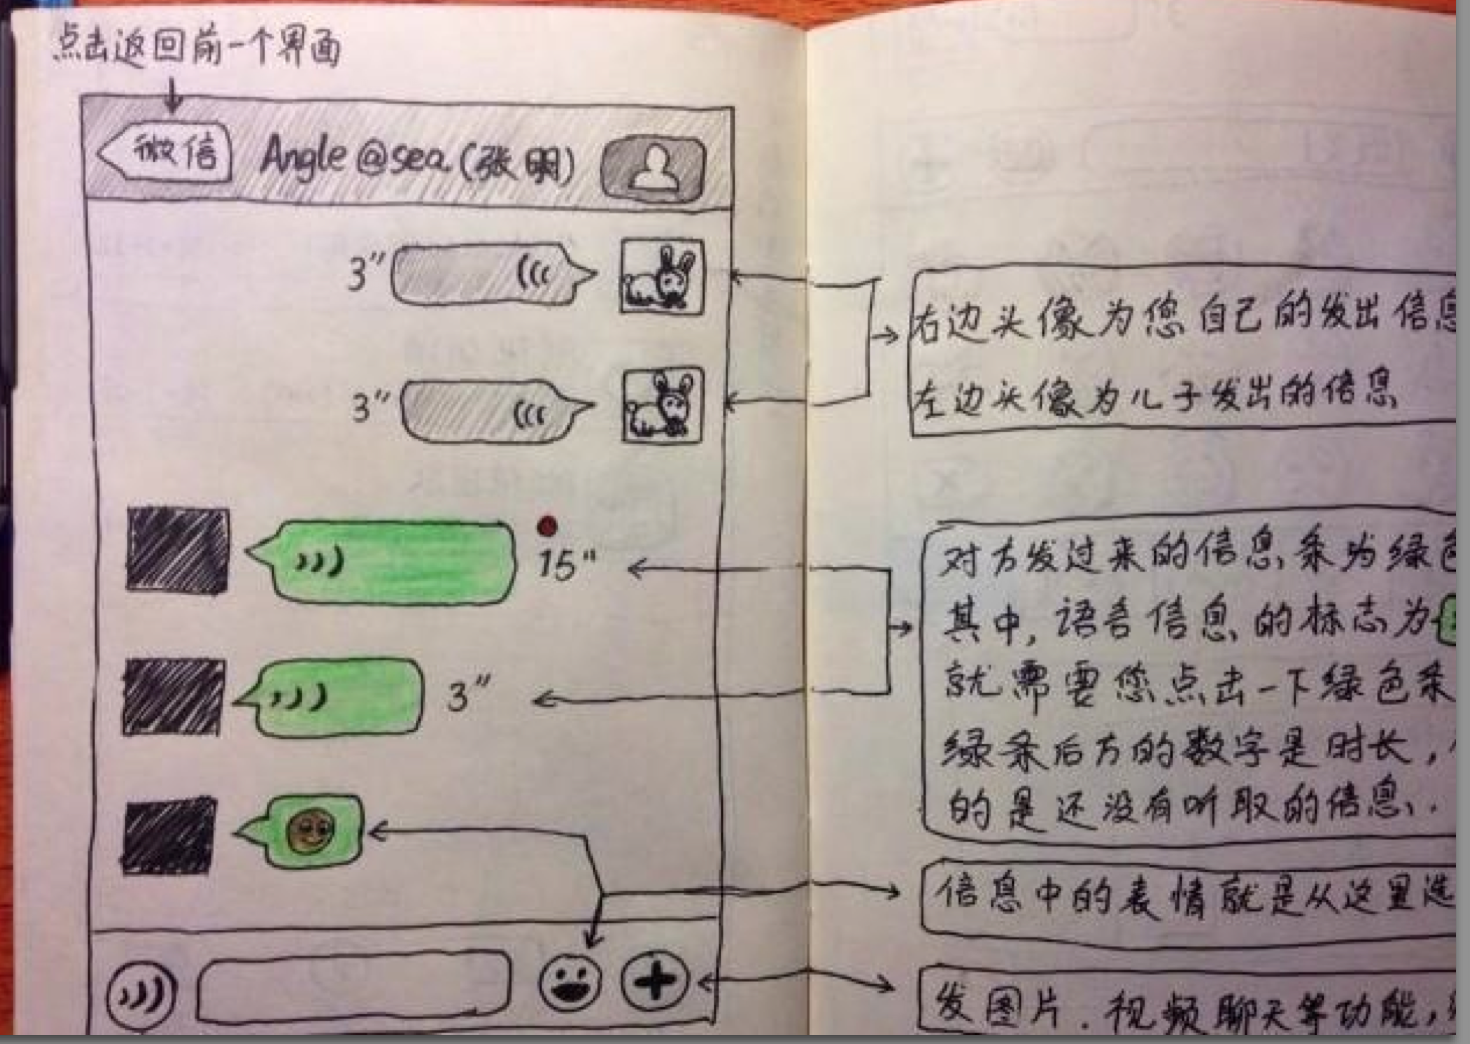 点击返回前一个界面
微信 Angle@sea.(张明)
3"
3"
15"
3"
右边头像为您自己的发出信息
左边头像为儿子发出的信息
对方发过来的信息,条为绿色
其中,语音信息的标志为
就需要您点击一下绿色条
绿条后方的数字是时长,
的是还没有听取的信息.
信息中的表情就是从这里选
发图片.视频聊天等功能,